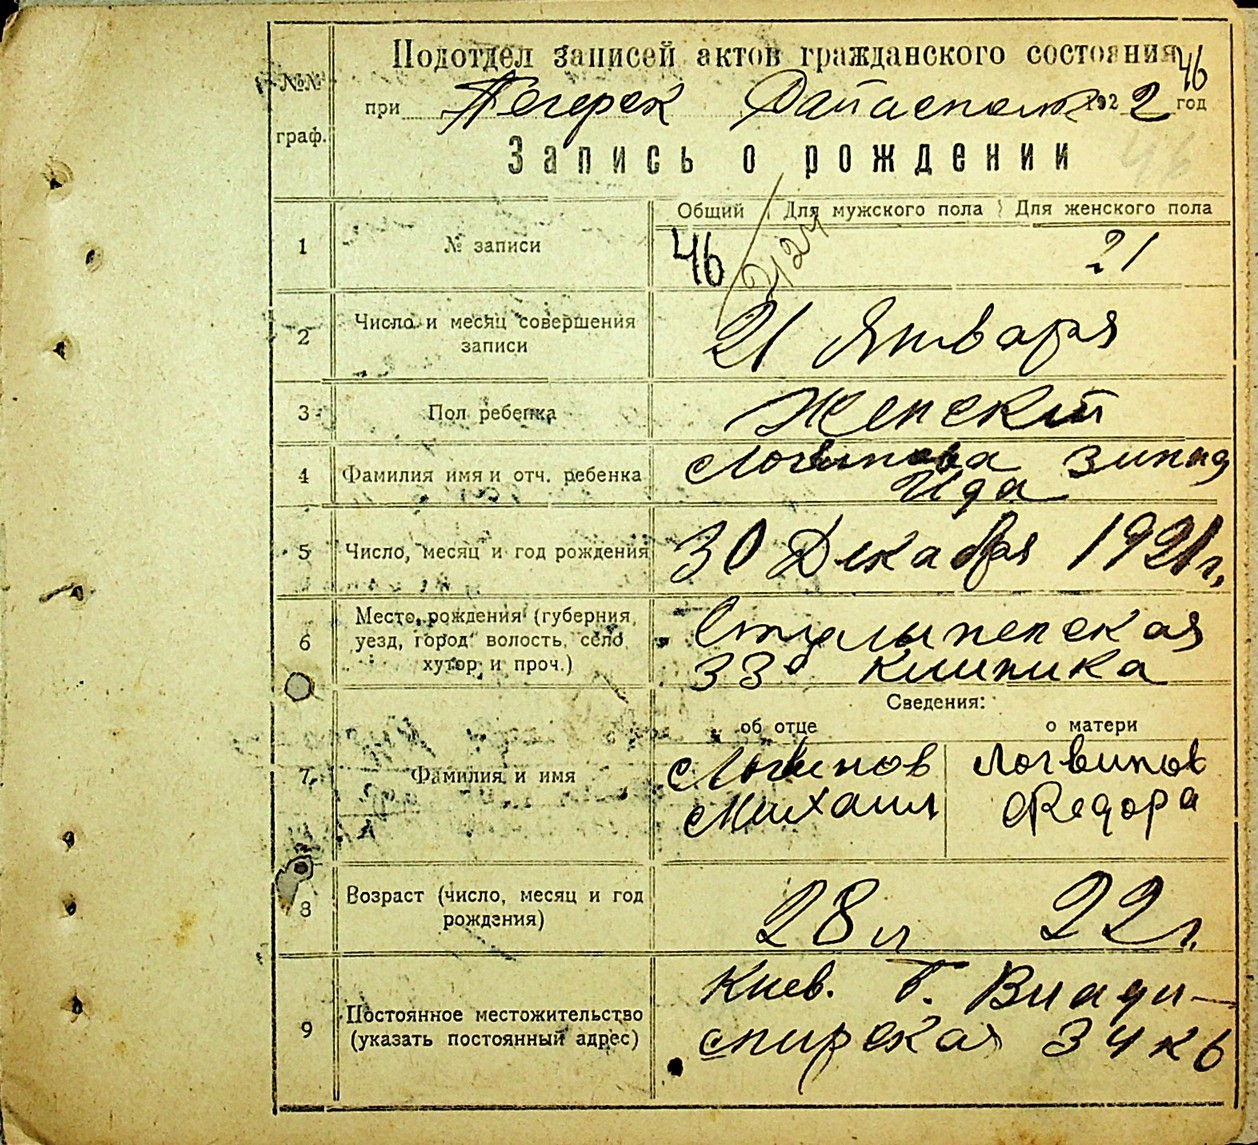 Подотдел записей актов гражданского состояния
46
№№ граф.
при Печерск 1922 год
Запись о рождении
Общий Для мужского пола Для женского пола
1 № записи 46 21
2 Число и месяц совершения записи 21 Января
3 Пол ребенка Женский
4 Фамилия имя и отч. ребенка Логвинова Зинаида
5 Число, месяц и год рождения 30 Декабря 1921 г.
6 Место рождения (губерния, уезд, город волость, село хутор и проч.) 33 клиника
Сведения:
об отце о матери
7 Фамилия и имя Логвинов Логвинов
Михаил Федора
8 Возраст (число, месяц и год рождения) 28 л 22 г.
9 Постоянное местожительство (указать постоянный адрес) Киев. Б. Влади-
мирская